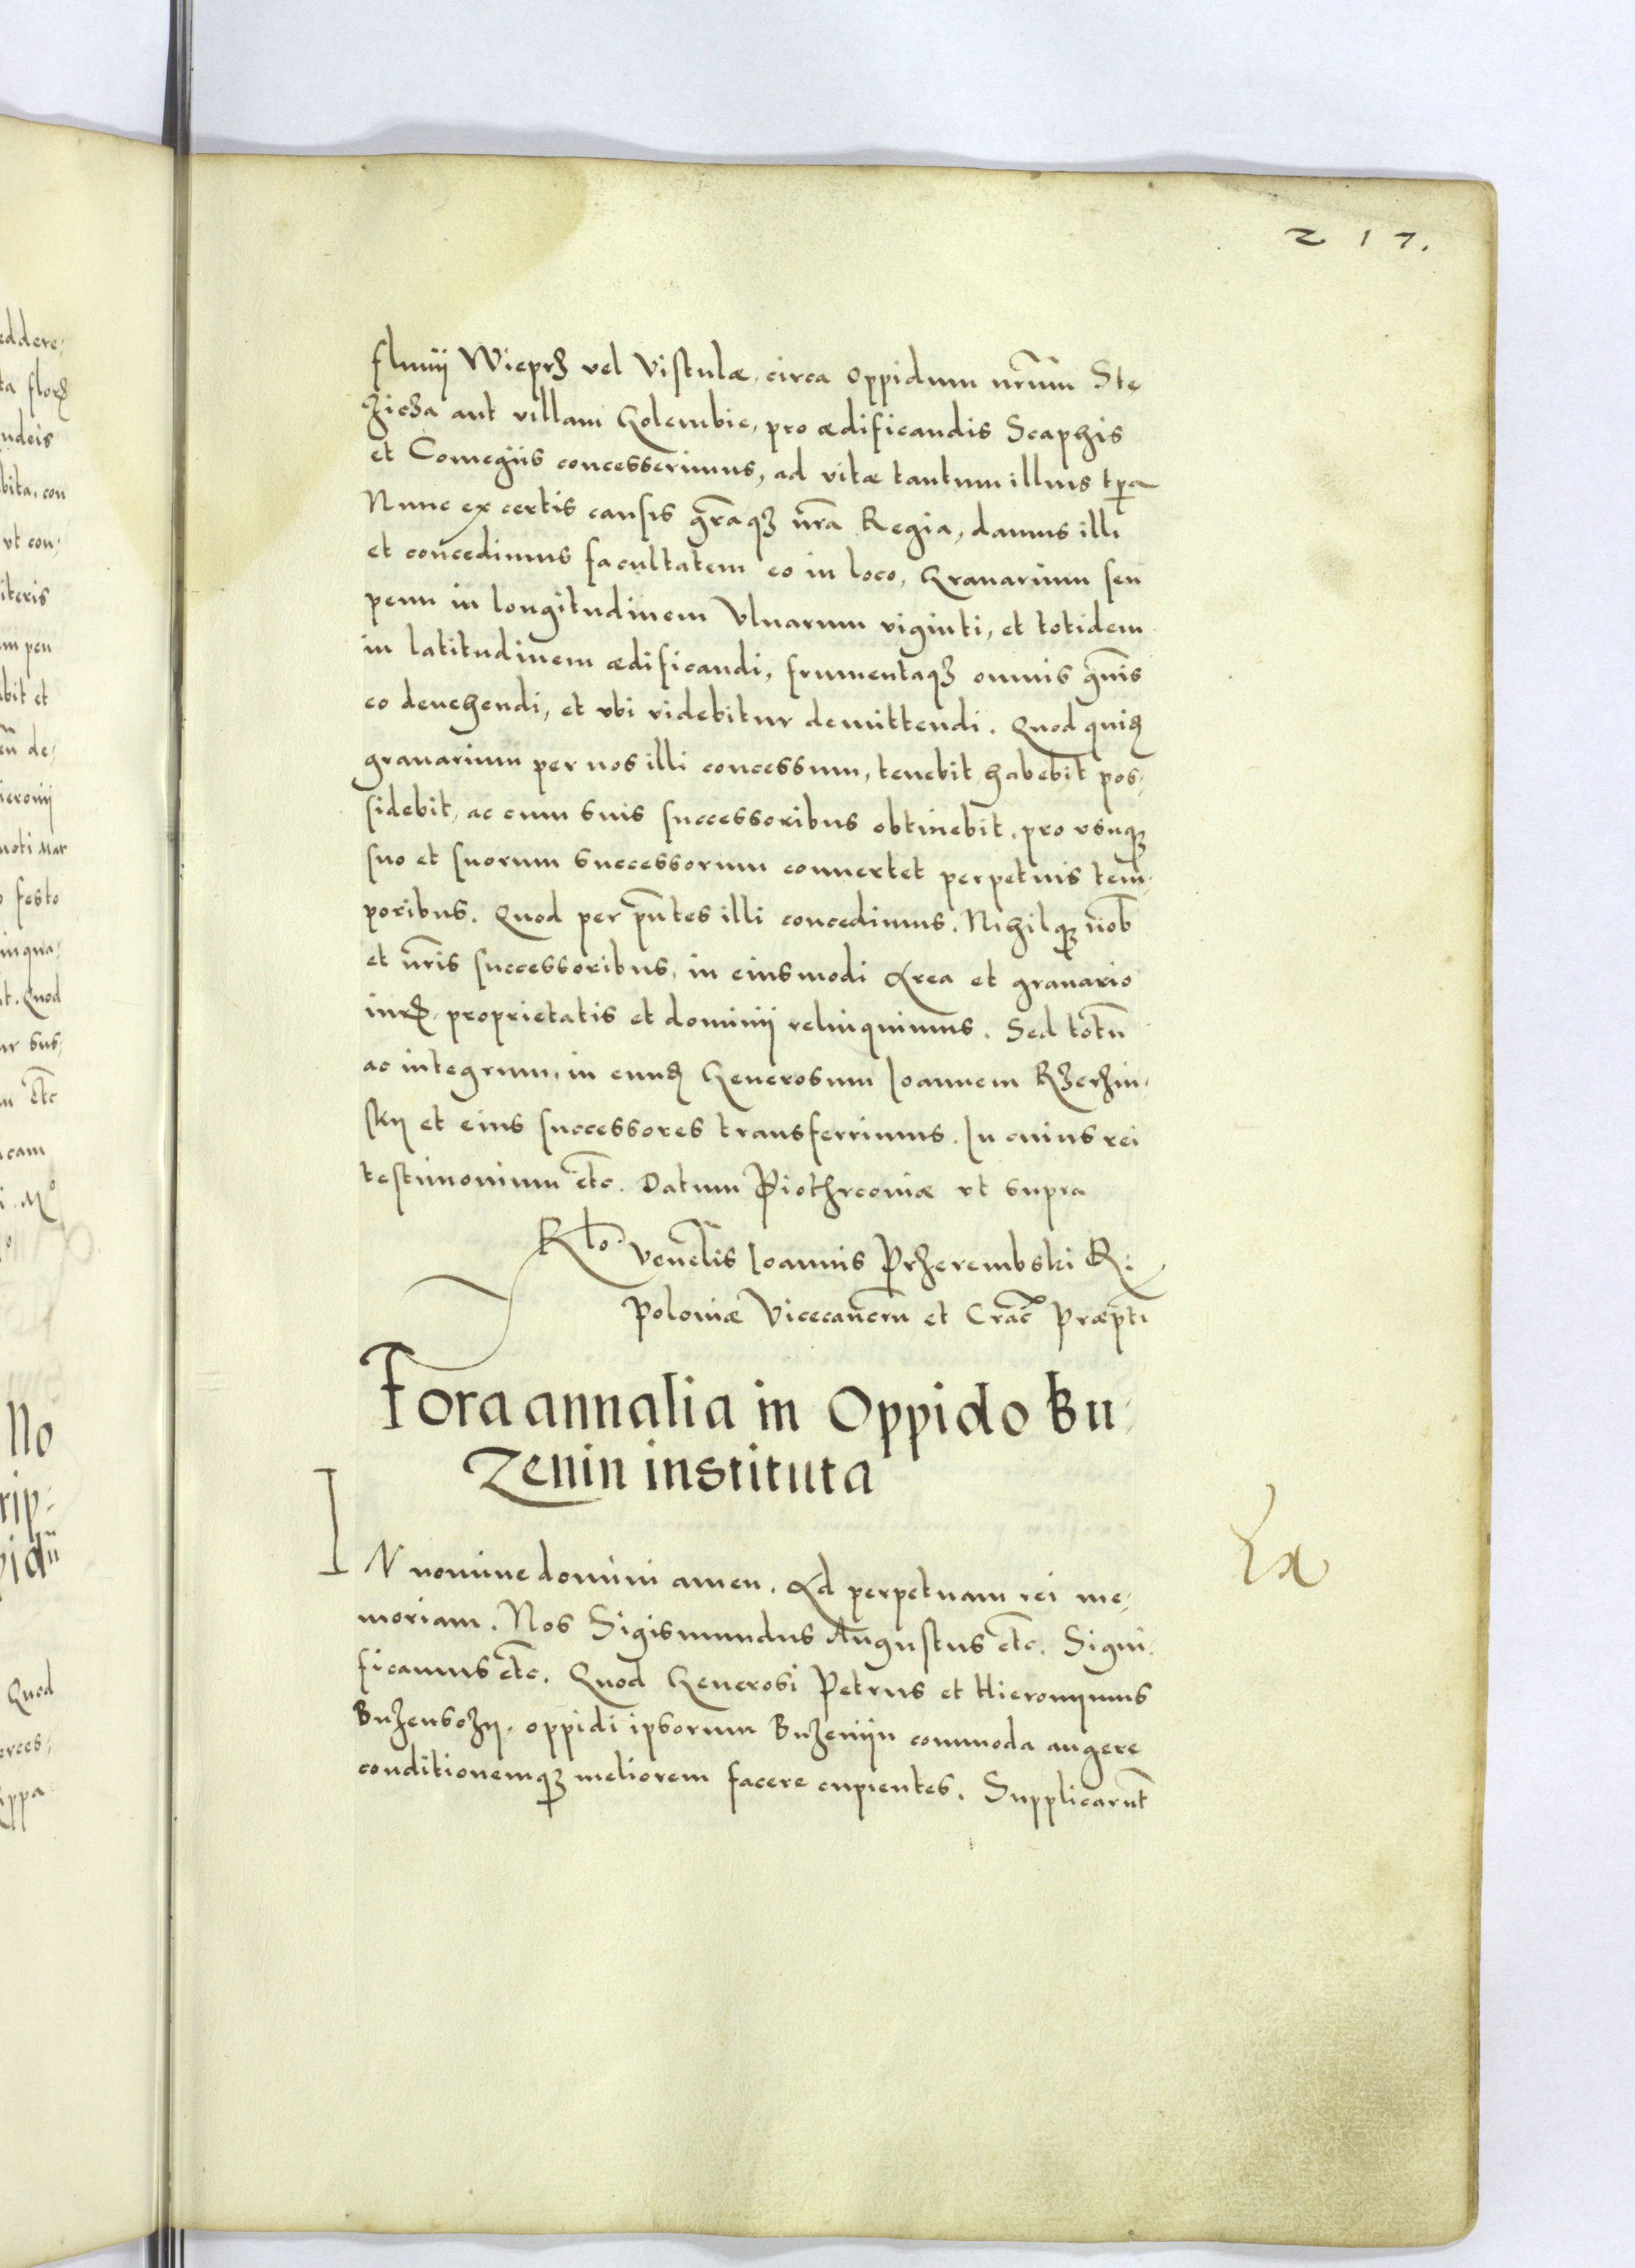 217.
fluuij Wieprz vel Vistulæ, circa oppidum nr̃um Ste
zicza aut villam Golembie, pro ædificandis Scaphis
et Comegijs concesserimus, ad vitæ tantum illius tp̃a
Nunc ex certis causis gr̃aqꝫ nr̃a Regia, damus illi
et concedimus facultatem eo in loco, Granarium seu
penu in longitudinem Vlnarum viginti, et totidem
in latitudinem ædificandi, frumentaqꝫ omnis gñis
eo deuehendi, et vbi videbitur demittendi. Quod quidẽ
granarium per nos illi concessum, tenebit habebit pos-
sidebit, ac cum suis successoribus obtinebit, pro vsuqꝫ
suo et suorum successorum conuertet perpetuis tem-
poribus. Quod per pñtes illi concedimus. Nihilqꝫ nob̃
et nr̃is successoribus, in eiusmodi Area et granario
iur̃ proprietatis et dominij relinquimus. Sed totũ
ac integrum, in eundẽ Generosum Ioannem Rzerzin-
skij et eius successores transferrimus. In cuius rei
testimonium etc̃. Datum Piothrcouiæ vt supra
Rlo. Venel̃is Ioannis Przerembski R:
Poloniæ Vicecanc̃rii et Crac̃ Præpti
Fora annalia in Oppido Bu-
zenin instituta
IN nomine domini amen. Ad perpetuam rei me-
moriam. Nos Sigismundus Augustus etc̃. Signi-
ficamus etc̃. Quod Generosi Petrus et Hieronijmus
Buzensczij, oppidi ipsorum Buzenijn commoda augere
conditionemqꝫ meliorem facere cupientes. Supplicarũt
eddere-
ta
udeis
bita, con
vt con-
iteris
m peu
bit et
de-
ieronij
uoti Mar
festo
inqua-
t. Quod
ur sus-
etc̃
icam
No
rip-
Quod
erces-
ippa